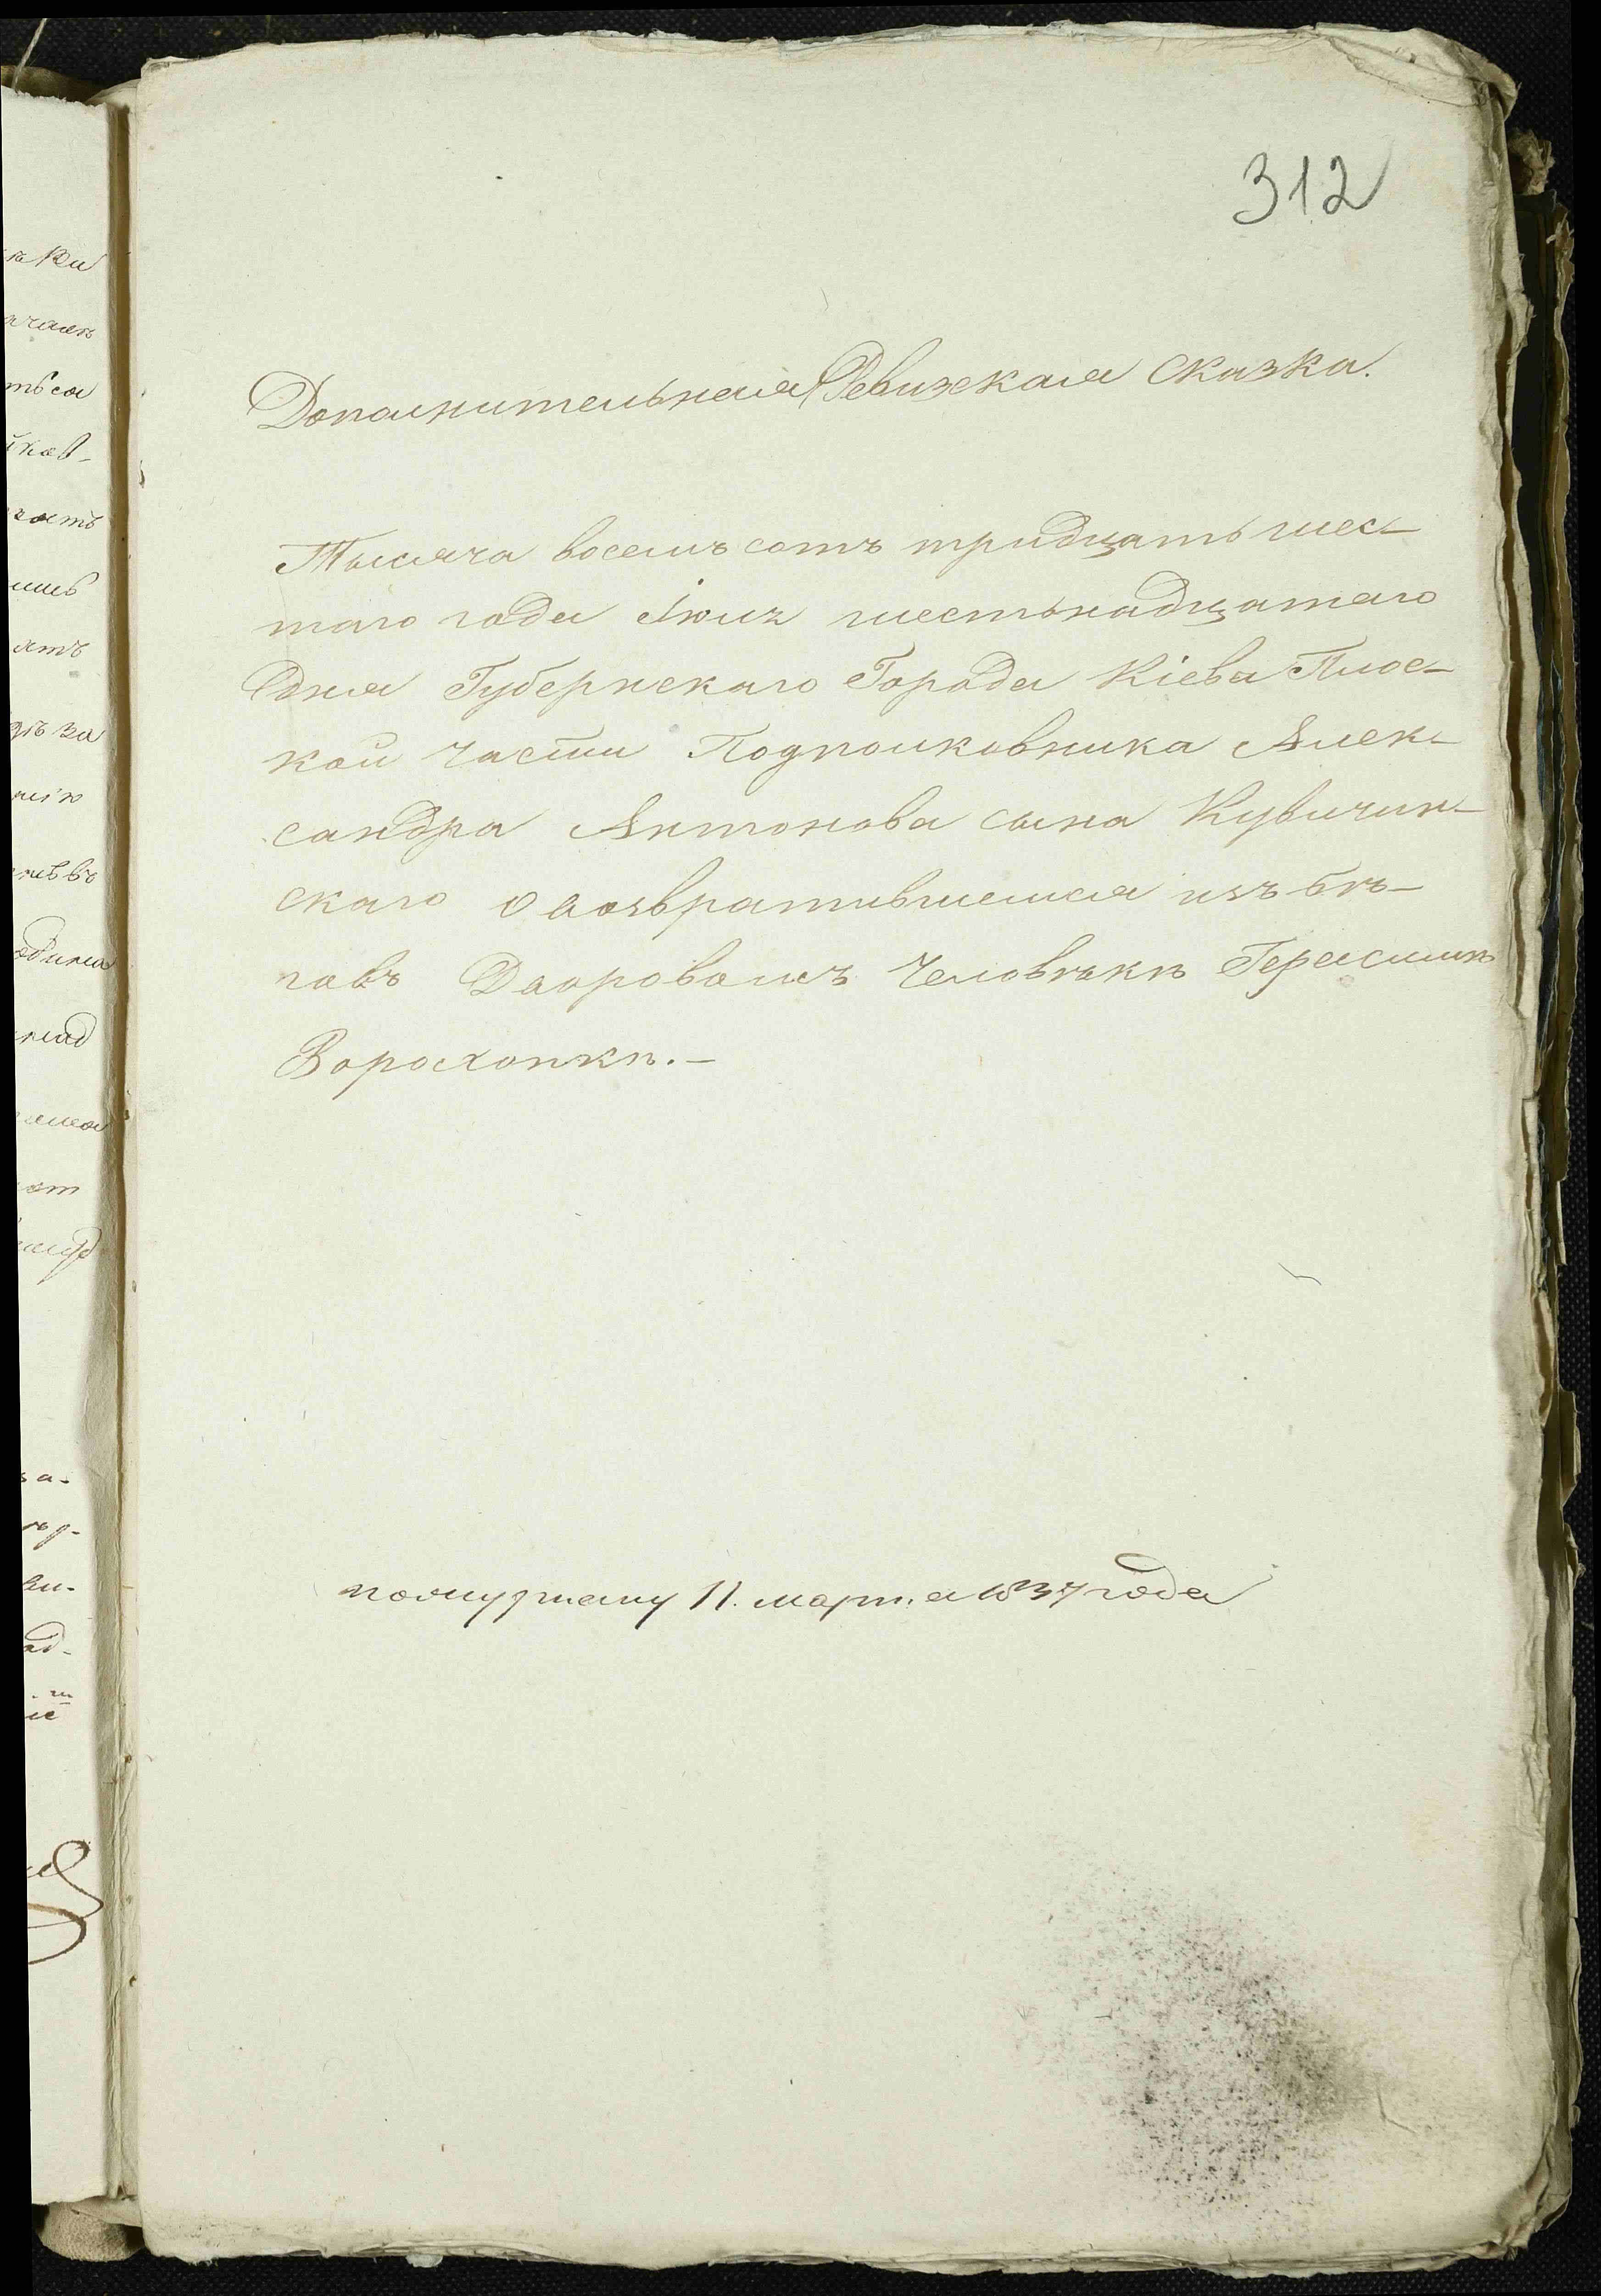 312
Дополнительная Ревизская Сказка.
Тысяча восемъ сотъ тридцать шес-
таго года Іюля шестьнадцатаго
дня Губернскаго Города Кіева Плос-
кой части Подполковника Алек-
сандра Антонова сына Кувичин-
скаго о возвратившемся изъ бѣ-
говъ Дворовомъ Человѣкѣ Герасимѣ
Ворохопкѣ.-
11. марта 1837 года